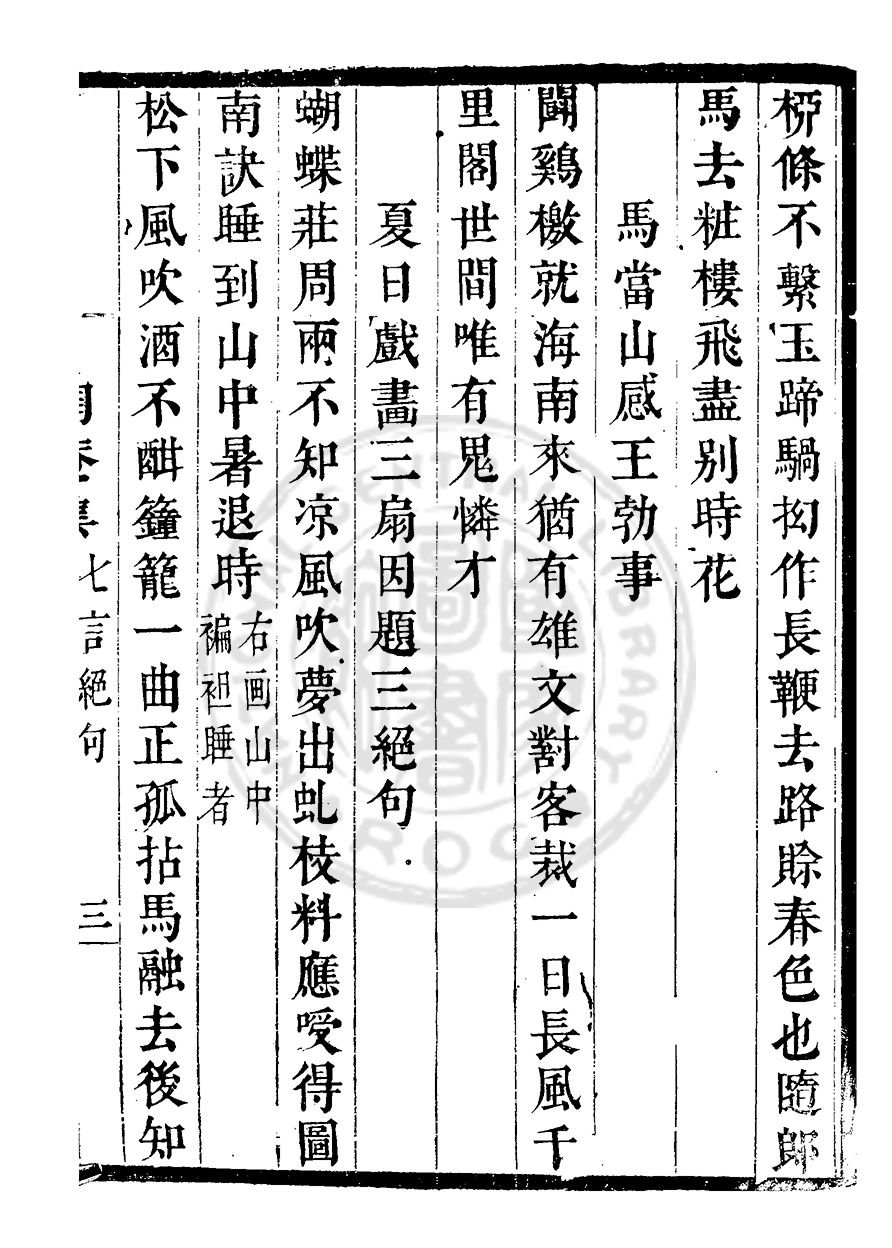 桺條不繫玉蹄騧抝作長鞭去路賒春色也隨郎
馬去粧樓飛盡別時花
馬當山感王勃事
鬭鷄檄就海南來猶有雄文對客裁一日長風千
里閣世間唯有鬼憐才
夏日戲畵三扇因題三絕句
蝴蝶莊周兩不知凉風吹夢出虬枝料應嗳得圖
南訣睡到山中暑退時
右画山中
褊袒睡者
松下風吹酒不酣籦籠一曲正孤拈馬融去後知
七言絕句
三